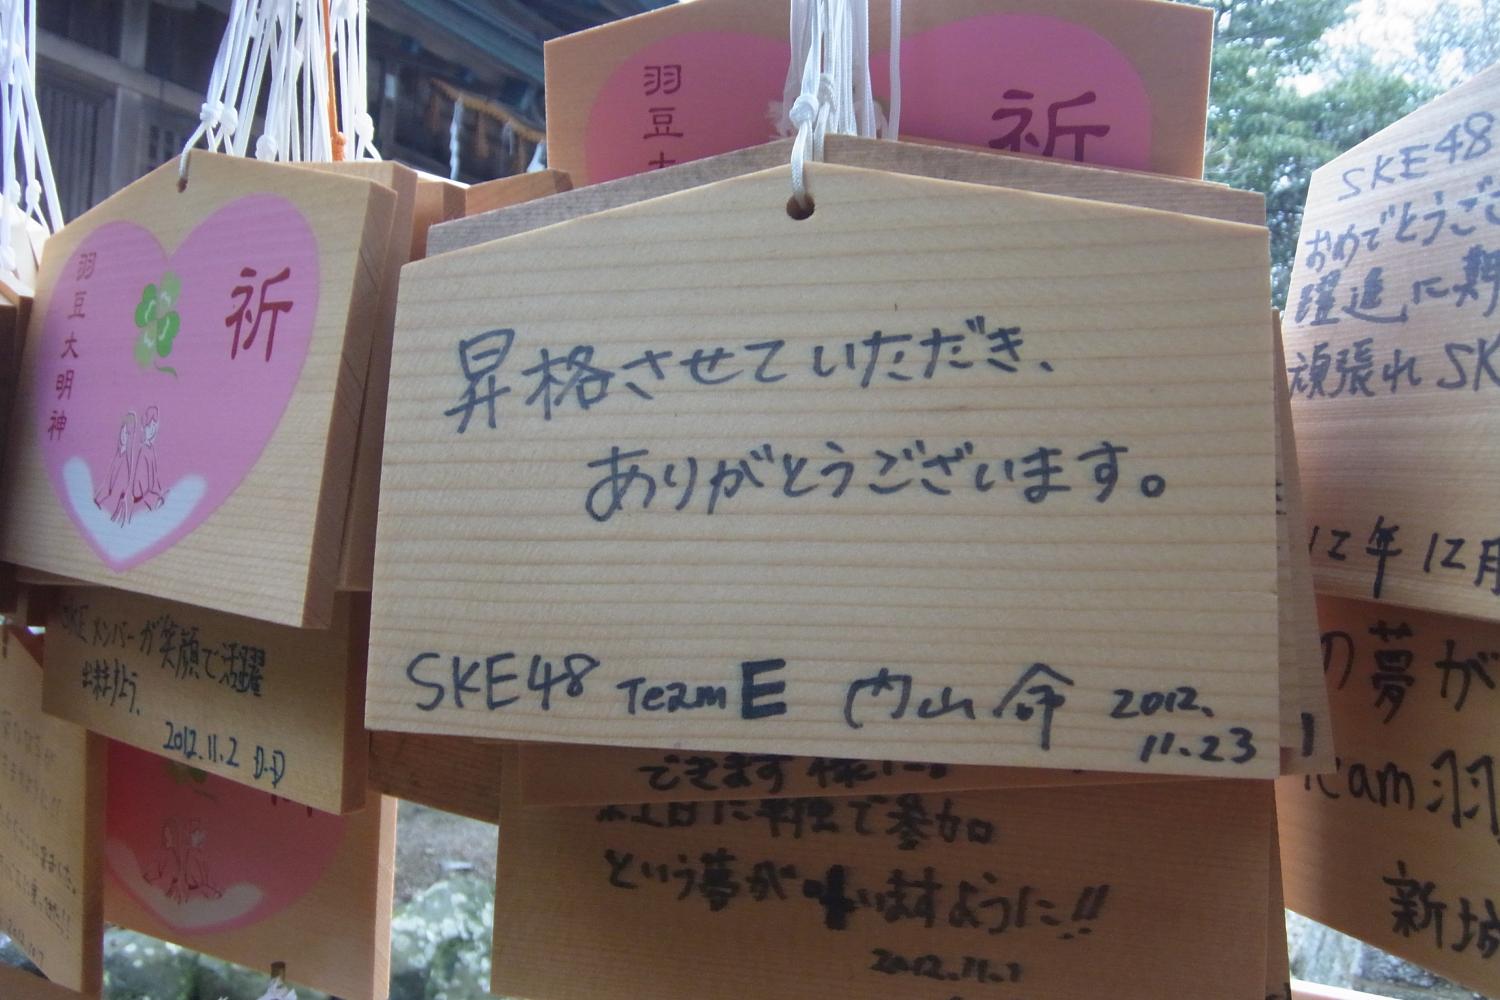 羽豆大
祈
羽豆大明神
祈
昇格させていただき、
ありがとうございます。
SKE48 Team E 内山命 2012.
11.23
SKE48
おめでとうござ
躍進に期
頑張れSK
12年12月
の夢が
eam羽
新城
SKEメンバーが笑顔で活躍
出来ますよう。
2012.11.2 D.D
できます様に。
紅白に単独で参加
という夢が叶いますように!!
2012.11.1